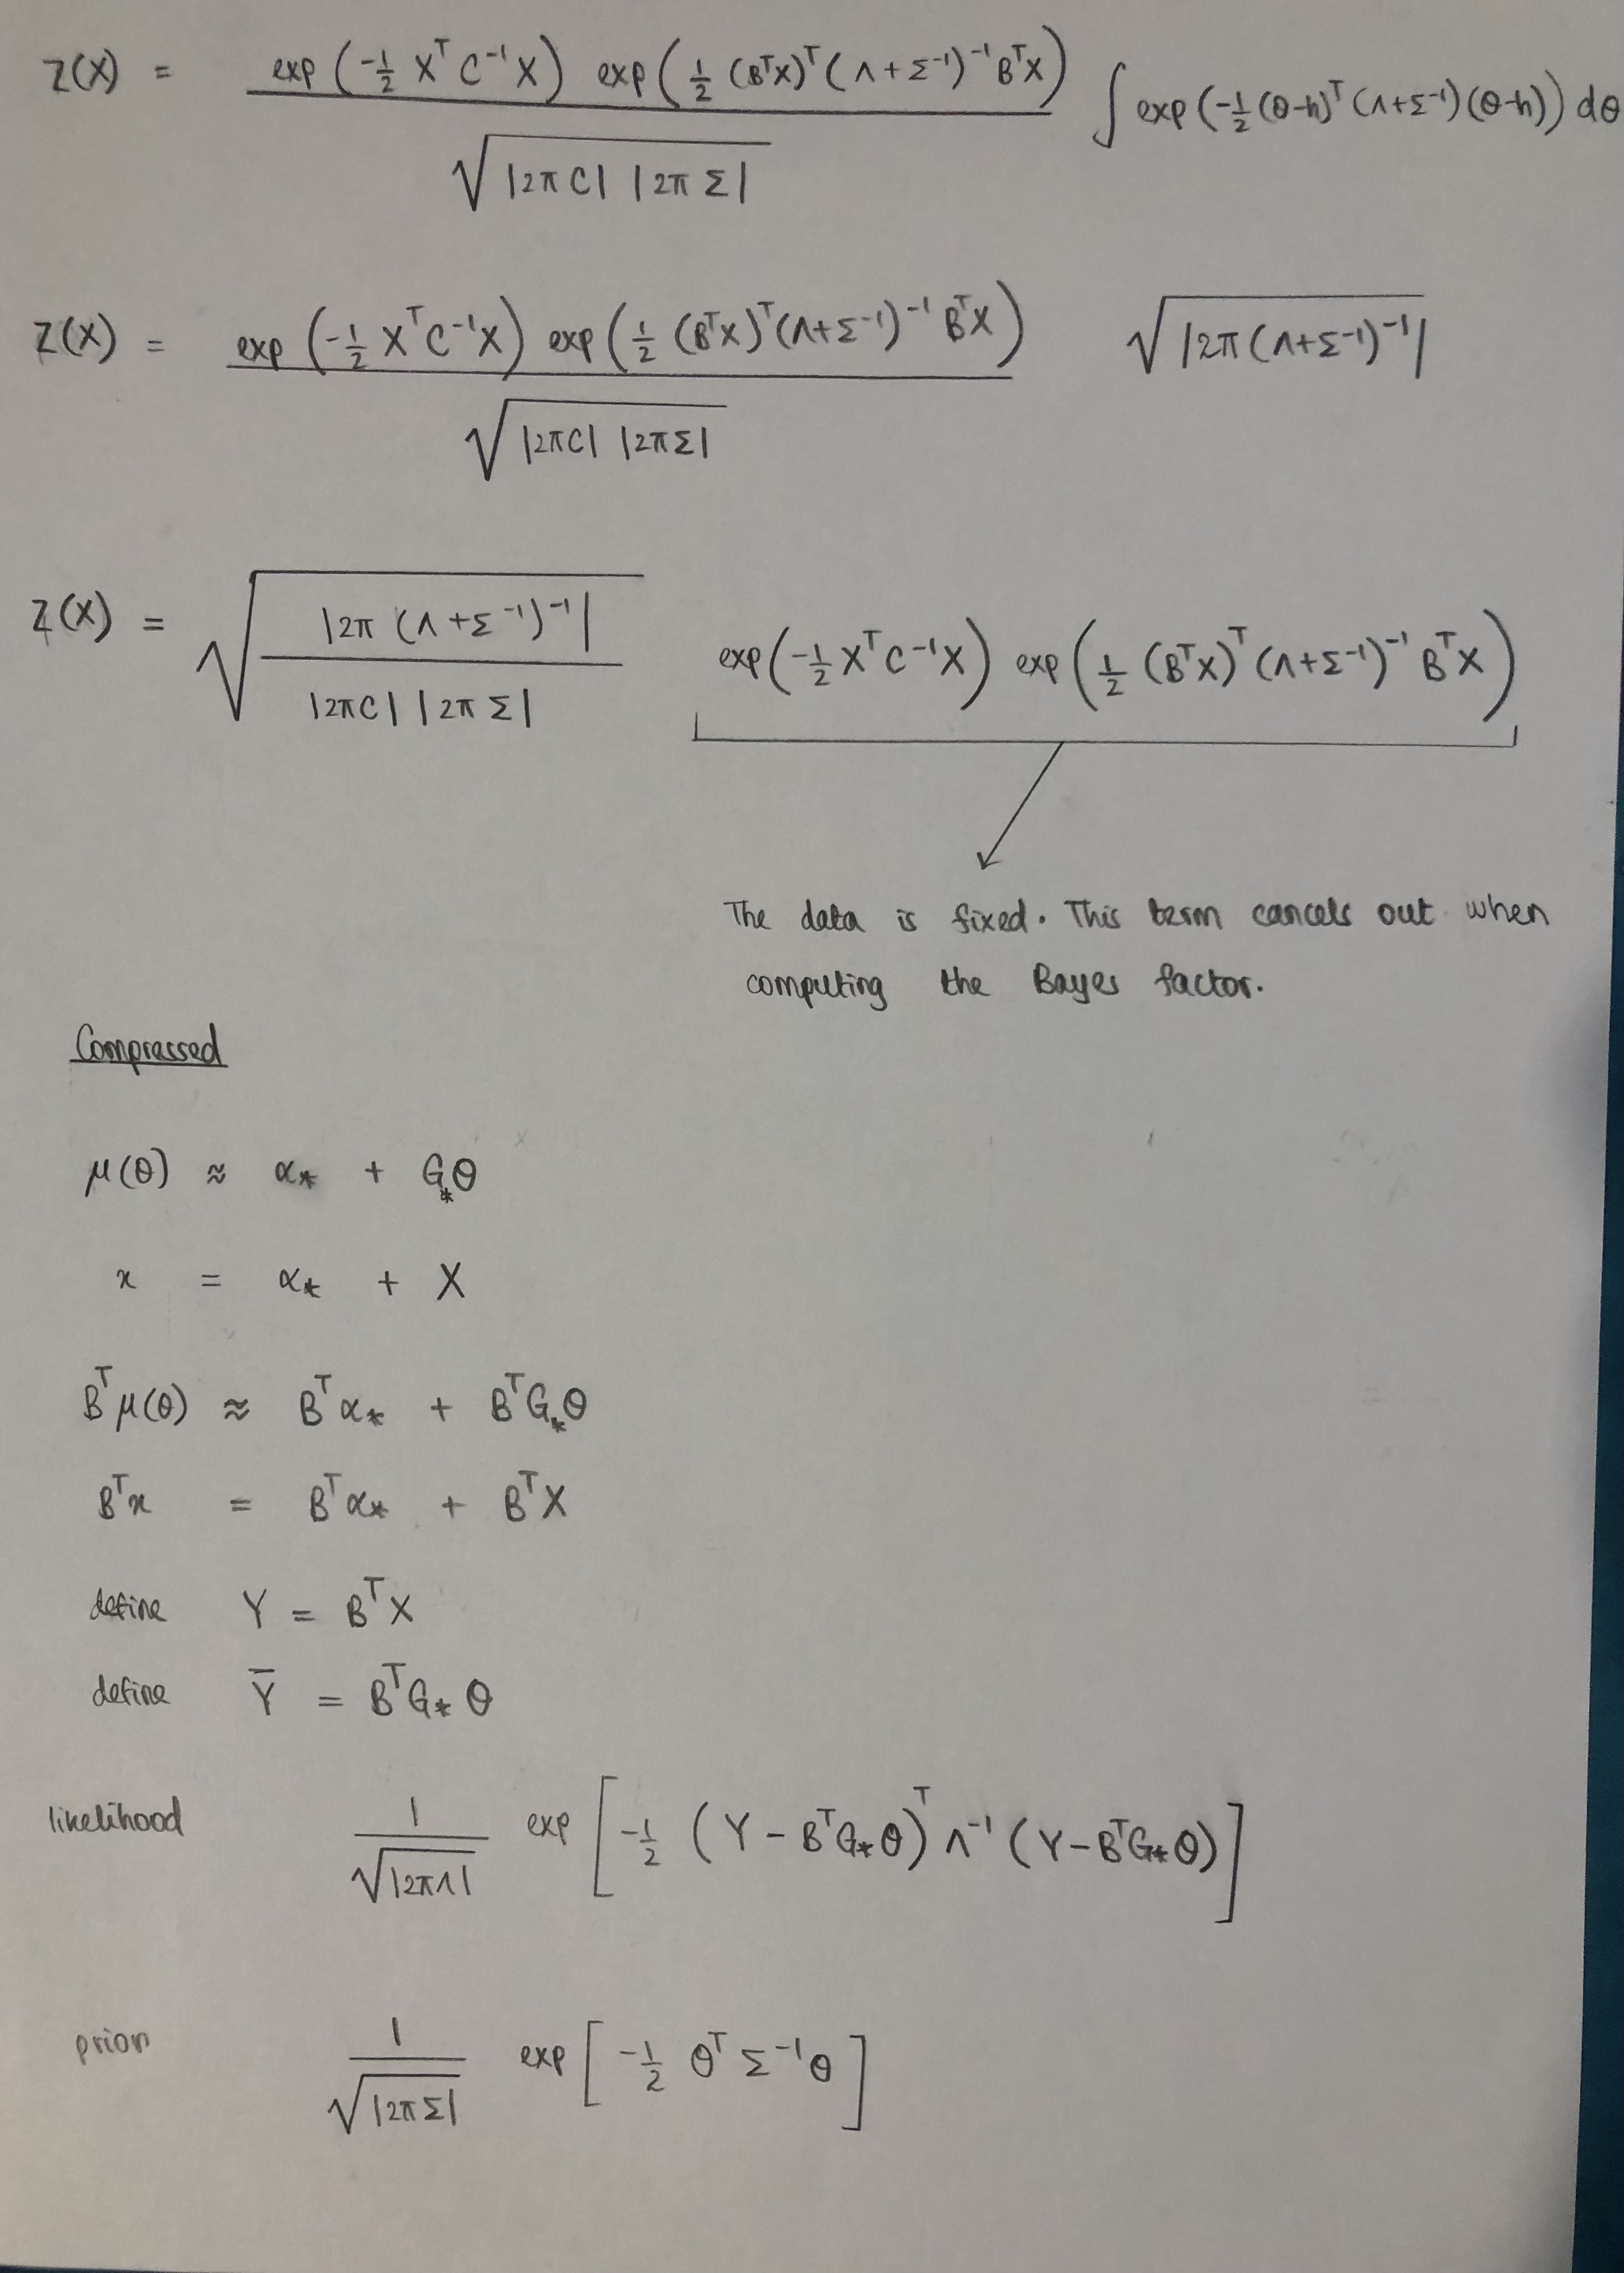 Z(X) = exp(-½ Xᵀ C⁻¹ X) exp(½ (BᵀX)ᵀ (Λ+Σ⁻¹)⁻¹ BᵀX) / √(|2π C| |2π Σ|) ∫ exp(-½ (θ-h)ᵀ (Λ+Σ⁻¹) (θ-h)) dθ
Z(X) = exp(-½ Xᵀ C⁻¹ X) exp(½ (BᵀX)ᵀ (Λ+Σ⁻¹)⁻¹ BᵀX) / √(|2πC| |2πΣ|) √|2π (Λ+Σ⁻¹)⁻¹|
Z(X) = √(|2π (Λ+Σ⁻¹)⁻¹| / |2πC| |2π Σ|) exp(-½ Xᵀ C⁻¹ X) exp(½ (BᵀX)ᵀ (Λ+Σ⁻¹)⁻¹ BᵀX)
The data is fixed. This term cancels out when
computing the Bayes factor.
Compressed
μ(θ) ≈ α* + G*θ
x = α* + X
Bᵀμ(θ) ≈ Bᵀα* + BᵀG*θ
Bᵀx = Bᵀα* + BᵀX
define Y = BᵀX
define Ȳ = BᵀG* θ
likelihood 1/√|2πΛ| exp [-½ (Y - BᵀG*θ)ᵀ Λ⁻¹ (Y - BᵀG*θ)]
prior 1/√|2πΣ| exp [-½ θᵀ Σ⁻¹ θ]